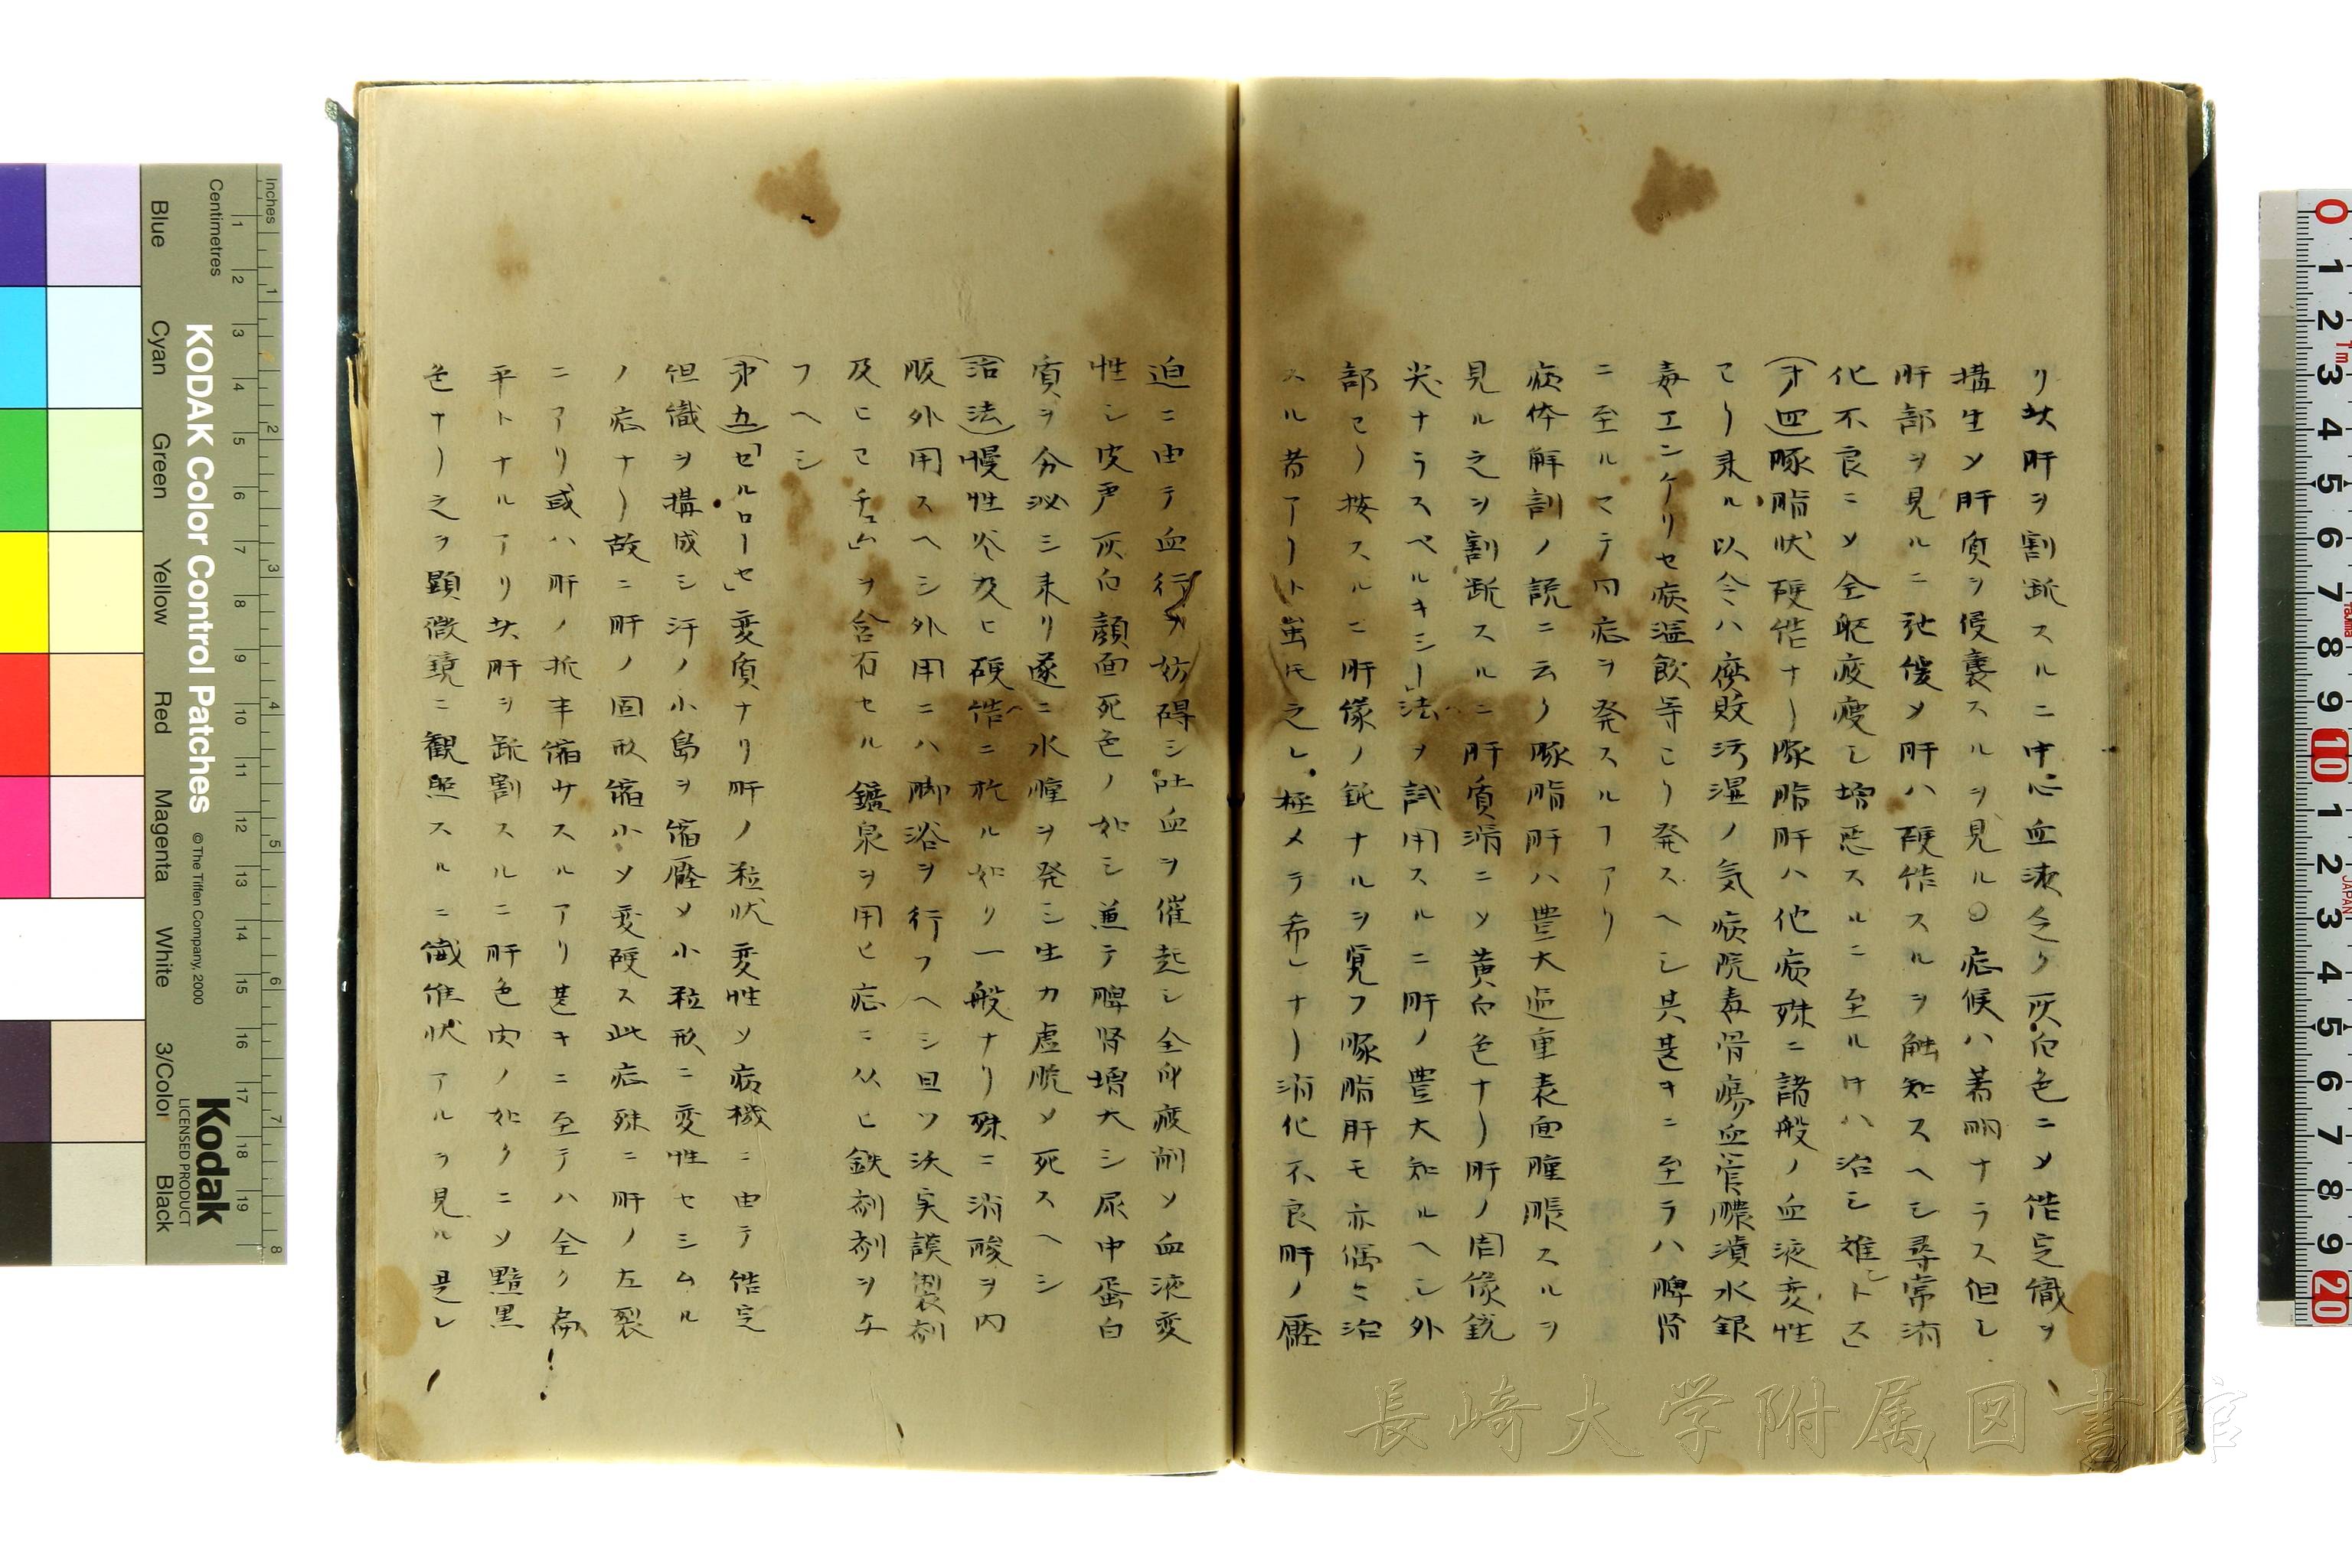 リ其肝ヲ割断スルニ中心血液乏ク灰白色ニソ結定織ヲ
構生ソ肝質ヲ侵襲スルヲ見ル〇症候ハ著明ナラス但し
肝部ヲ見ルニ弛緩ソ肝ハ硬結スルヲ触知スヘシ尋常消
化不良ニソ全躯疲痩し増悪スルニ至ルけハ治シ難トス
(才四)豚脂状硬結ナリ豚脂肝ハ他病殊ニ諸般ノ血液変性
ヨリ来ル以令ハ腐敗汚湿ノ気病院毒骨瘍血管膿潰水銀
毒エンケリセ病溢飲等ヨリ発スヘシ其甚キニ至ラハ脾腎
ニ至ルマテ内症ヲ発スルフアリ
病体解剖ノ説ニ云ク豚脂肝ハ豊大過重表面腫脹スルヲ
見ル之ヲ割断スルニ肝質滑ニソ黄白色ナリ肝ノ固像鋭
尖ナラスペルキシー法ヲ試用スルニ肝ノ豊大知ルヘシ外
部ヨリ按スルニ肝像ノ鈍ナルヲ覚フ豚脂肝モ亦偶ミ治
スル者アリト蚩氏之レ極メテ希レナリ消化不良肝ノ壓
迫ニ由テ血行ヲ妨碍シ吐血ヲ催起シ全身疲削ソ血液変
性シ皮声灰白顔面死色ノ如シ兼テ脾腎増大シ尿中蛋白
質ヲ分泌シ来リ遂ニ水腫ヲ発シ生力虚脱ソ死スヘシ
(治法)慢性炎及ヒ硬結ニ於ル如リ一般ナリ殊ニ消酸ヲ内
服外用スヘシ外用ニハ脚浴ヲ行フヘシ且ツ沃実謨製剤
及ヒヨチュムヲ含石セル鑛泉ヲ用ヒ症ニ从ヒ鉄剤剤ヲ与
フヘシ
(才五)「セルローセ」変質ナリ肝ノ粒状変性ソ病機ニ由テ結定
但織ヲ構成シ汗ノ小島ヲ縮壓ソ小粒形ニ変性セシムル
ノ症ナリ故ニ肝ノ固形縮小ソ変硬ス此症殊ニ肝ノ左裂
ニアリ或ハ肝ノ折半縮サスルアリ甚キニ至テハ全ク扁
平トナルアリ其肝ヲ断割スルニ肝色肉ノ如クニソ黯黒
色ナリ之ヲ顕微鏡ニ観照スルニ織維状アルヲ見ル是レ
KODAK Color Control Patches
©The Tiffen Company, 2000
Kodak
LICENSED PRODUCT
Inches
Centimetres
Blue
Cyan
Green
Yellow
Red
Magenta
White
3/Color
Black
長崎大学附属図書館